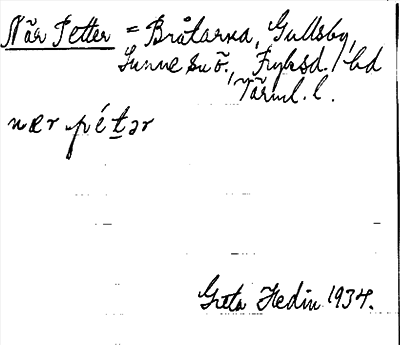 När Petter = Bråtarna, Gullsby,
Sunne sn ö., Fryksd. hd
Värml. l.
nær péṯər
Greta Hedin 1934.